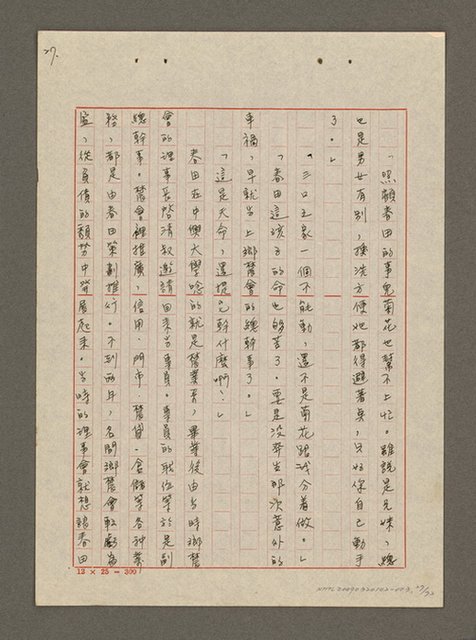 27.
「照顧春田的事兒菊花也幫不上忙。雖說是兄妹，總
也是男女有別，換洗方便她都得避著臭，只好你自己動手
了。」
「三口之家一個不能動，還不是菊花跟淑分着做。」
「春田這孩子的命也够苦了。要是沒發生那次意外的
車禍，早就当上鄉農會的總幹事了。」
「這是天命，還提它幹什麼啊！」
春田在中興大學唸的就是農業系，畢業後由当時鄉農
會的理事長啓清叔邀請回來当專員。專員的職位等於是副
總幹事。農會裡推廣、信用、門市、農貸、倉儲等各种業
務，都是由春田策劃推行。不到兩年，名間鄉農會轉虧為
盈，從負債的頹势中發展起來。当時的理事會就想報春田
12 × 25 = 300